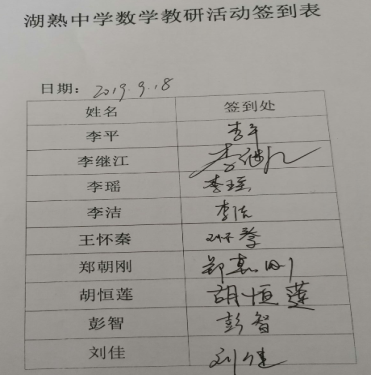 湖熟中学数学教研活动签到表
日期：2019.9.18
姓名 签到处
李平 李平
李继江 李继江
李瑶 李瑶
李洁 李洁
王怀秦
郑朝刚 郑朝刚
胡恒莲 胡恒莲
彭智 彭智
刘佳 刘佳